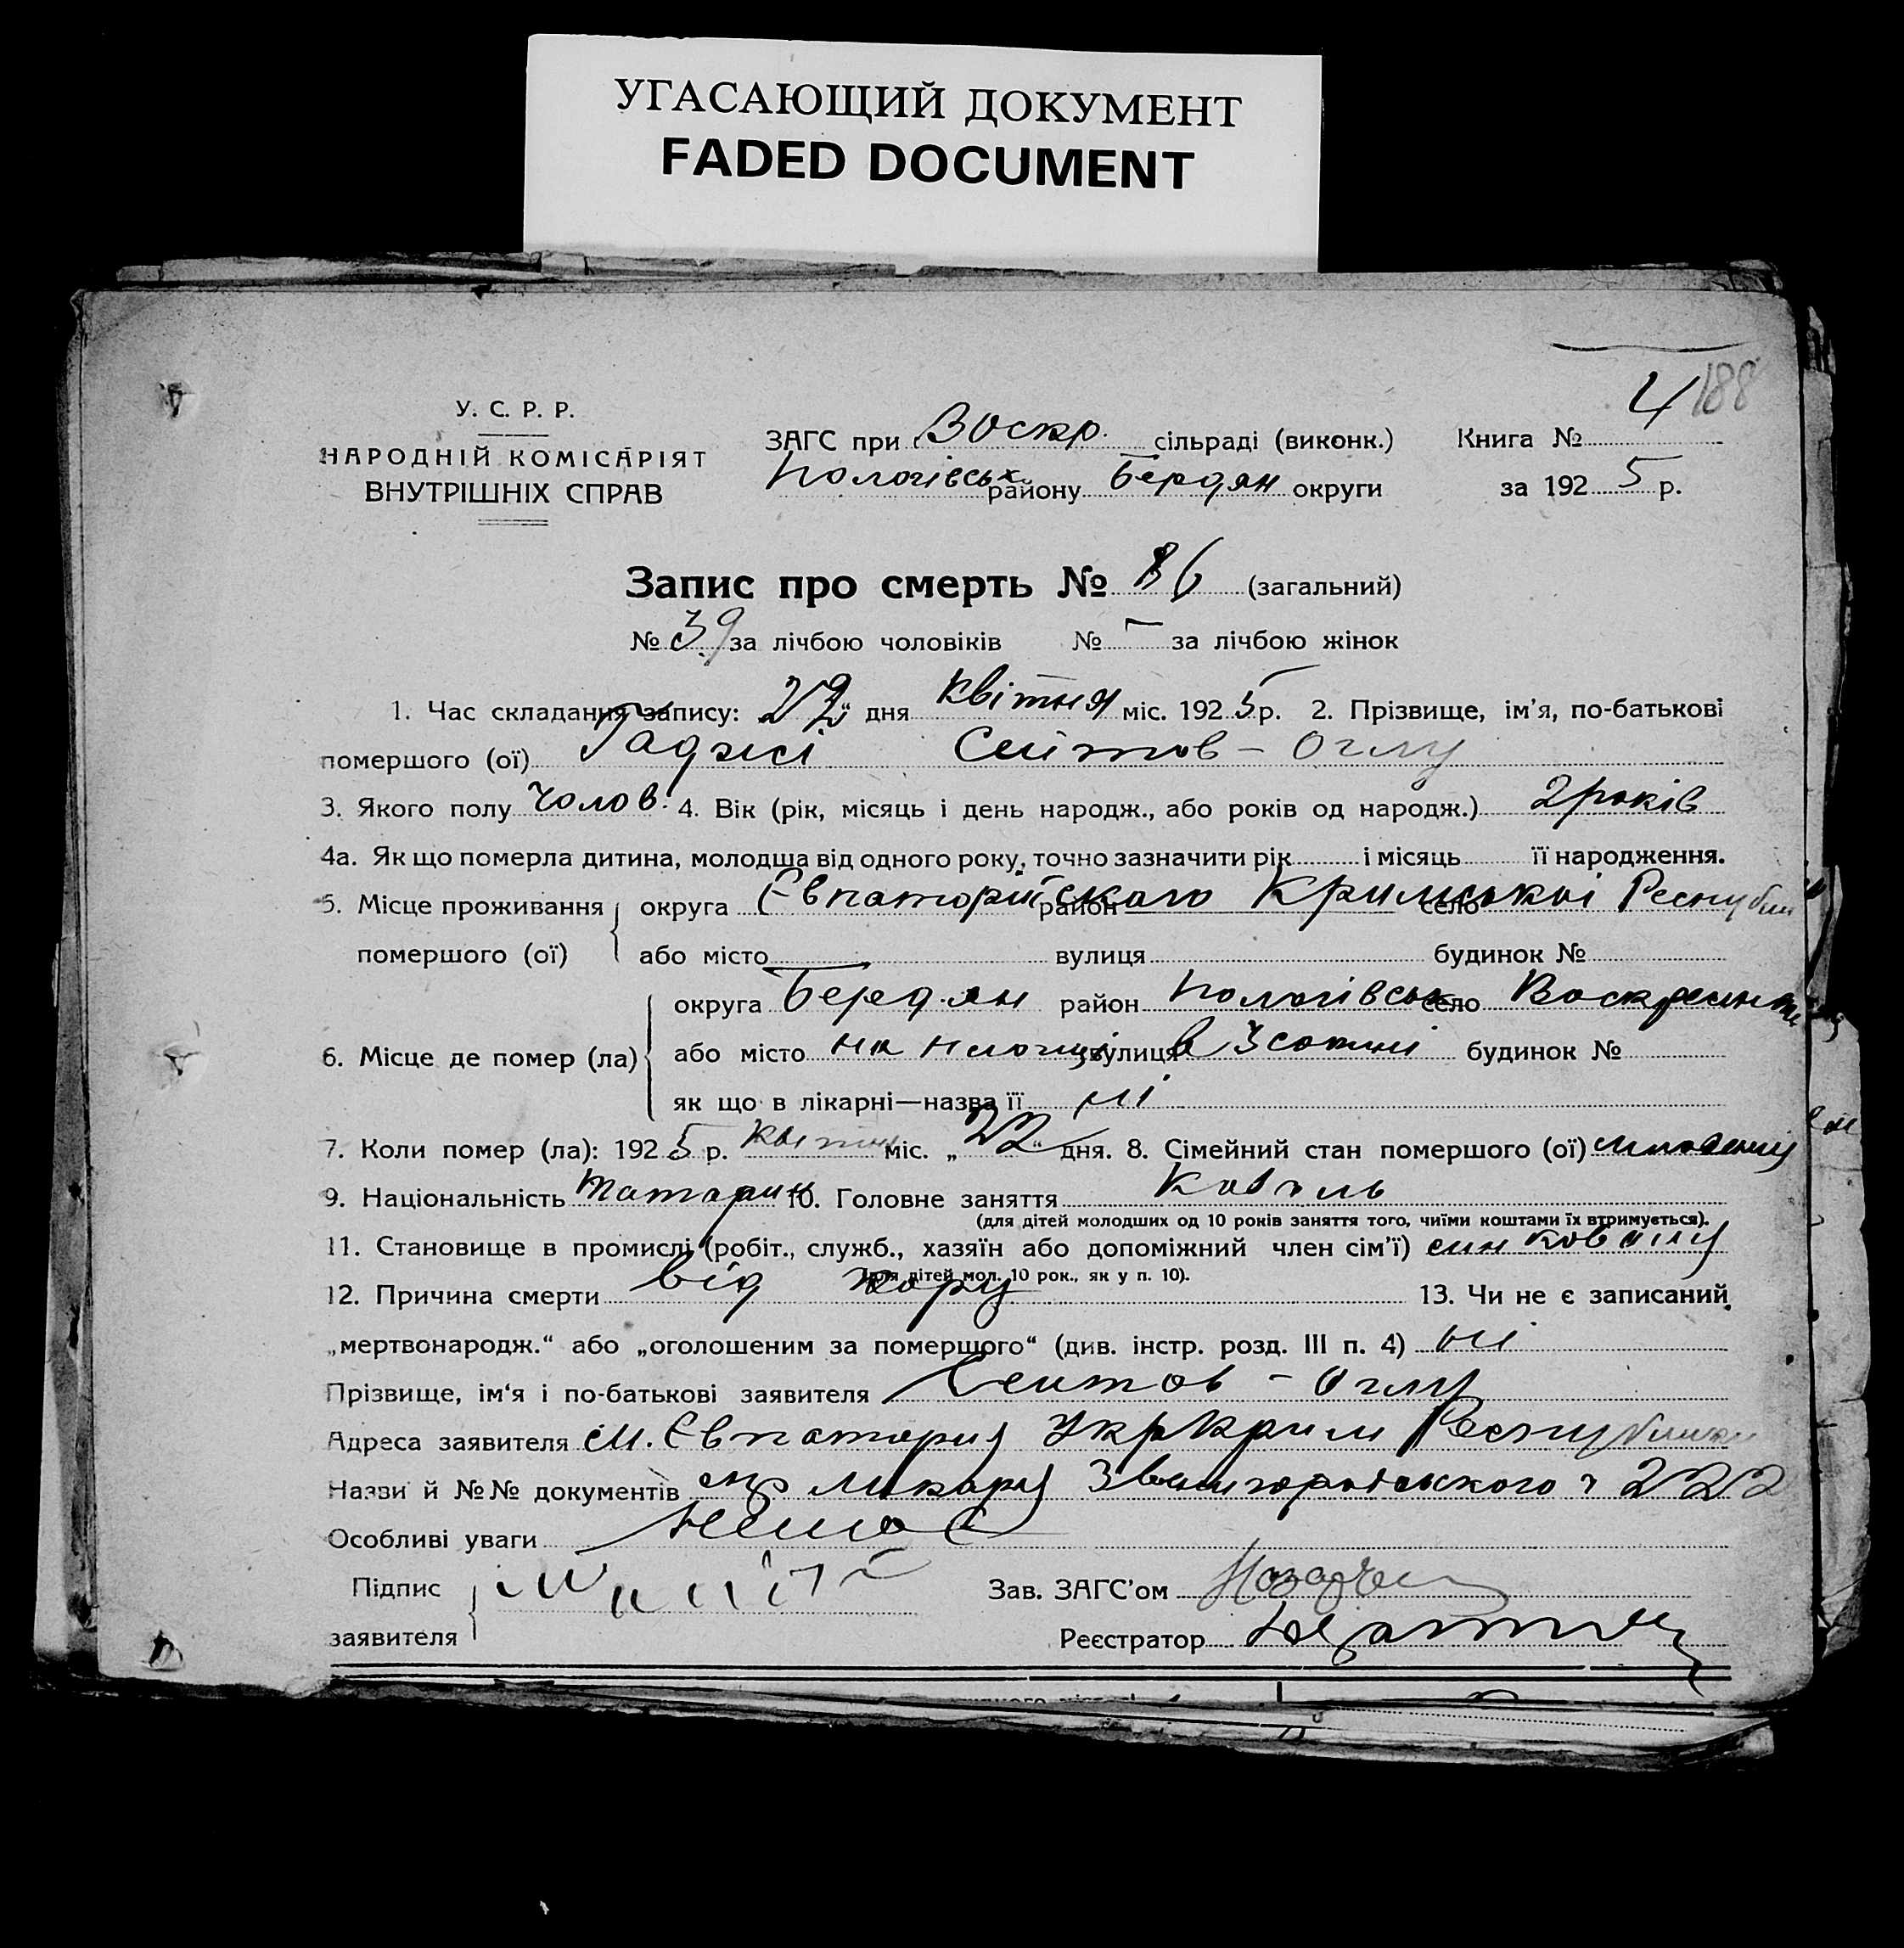 УГАСАЮЩИЙ ДОКУМЕНТ
FADED DOCUMENT
4 188
У. С. Р. Р.
НАРОДНІЙ КОМІСАРІЯТ
ВНУТРІШНІХ СПРАВ
ЗАГС при Воскр. сільраді (виконк.) Книга №
Пологівськ району Бердян округи за 1925 р.
Запис про смерть № 86 (загальний)
№ 39 за лічбою чоловіків № — за лічбою жінок
1. Час складання запису: 22 дня квітня міс. 1925 р. 2. Прізвище, ім'я, по-батькові
помершого (ої) Гаджі Сеітов - Оглу
3. Якого полу чолов. 4. Вік (рік, місяць і день народж., або років од народж.) 2 років
4а. Як що померла дитина, молодша від одного року, точно зазначити рік і місяць її народження.
5. Місце проживання округа Євпаторійського район Кримської село Республ
помершого (ої) або місто вулиця будинок №
округа Бердян район Пологівськ село Воскресенк
6. Місце де помер (ла) або місто на вулиця в 3 сотні будинок №
як що в лікарні—назва її ні
7. Коли помер (ла): 1925 р. квітня міс. „22“ дня. 8. Сімейний стан помершого (ої)
9. Національність татарин 10. Головне заняття Коваль
(для дітей молодших од 10 років заняття того, чиїми коштами їх втримується).
11. Становище в промислі (робіт., служб., хазяїн або допоміжний член сім'ї) син коваля
(для дітей мол. 10 рок., як у п. 10).
12. Причина смерти від кору 13. Чи не є записаний
„мертвонародж.“ або „оголошеним за помершого“ (див. інстр. розд. III п. 4) ні
Прізвище, ім'я і по-батькові заявителя Сеитов - Оглу
Адреса заявителя м. Євпатория Крим Республики
Назви й №№ документів лікаря Звенигородського 222
Особливі уваги немає
Підпис
заявителя
Зав. ЗАГС'ом
Реєстратор